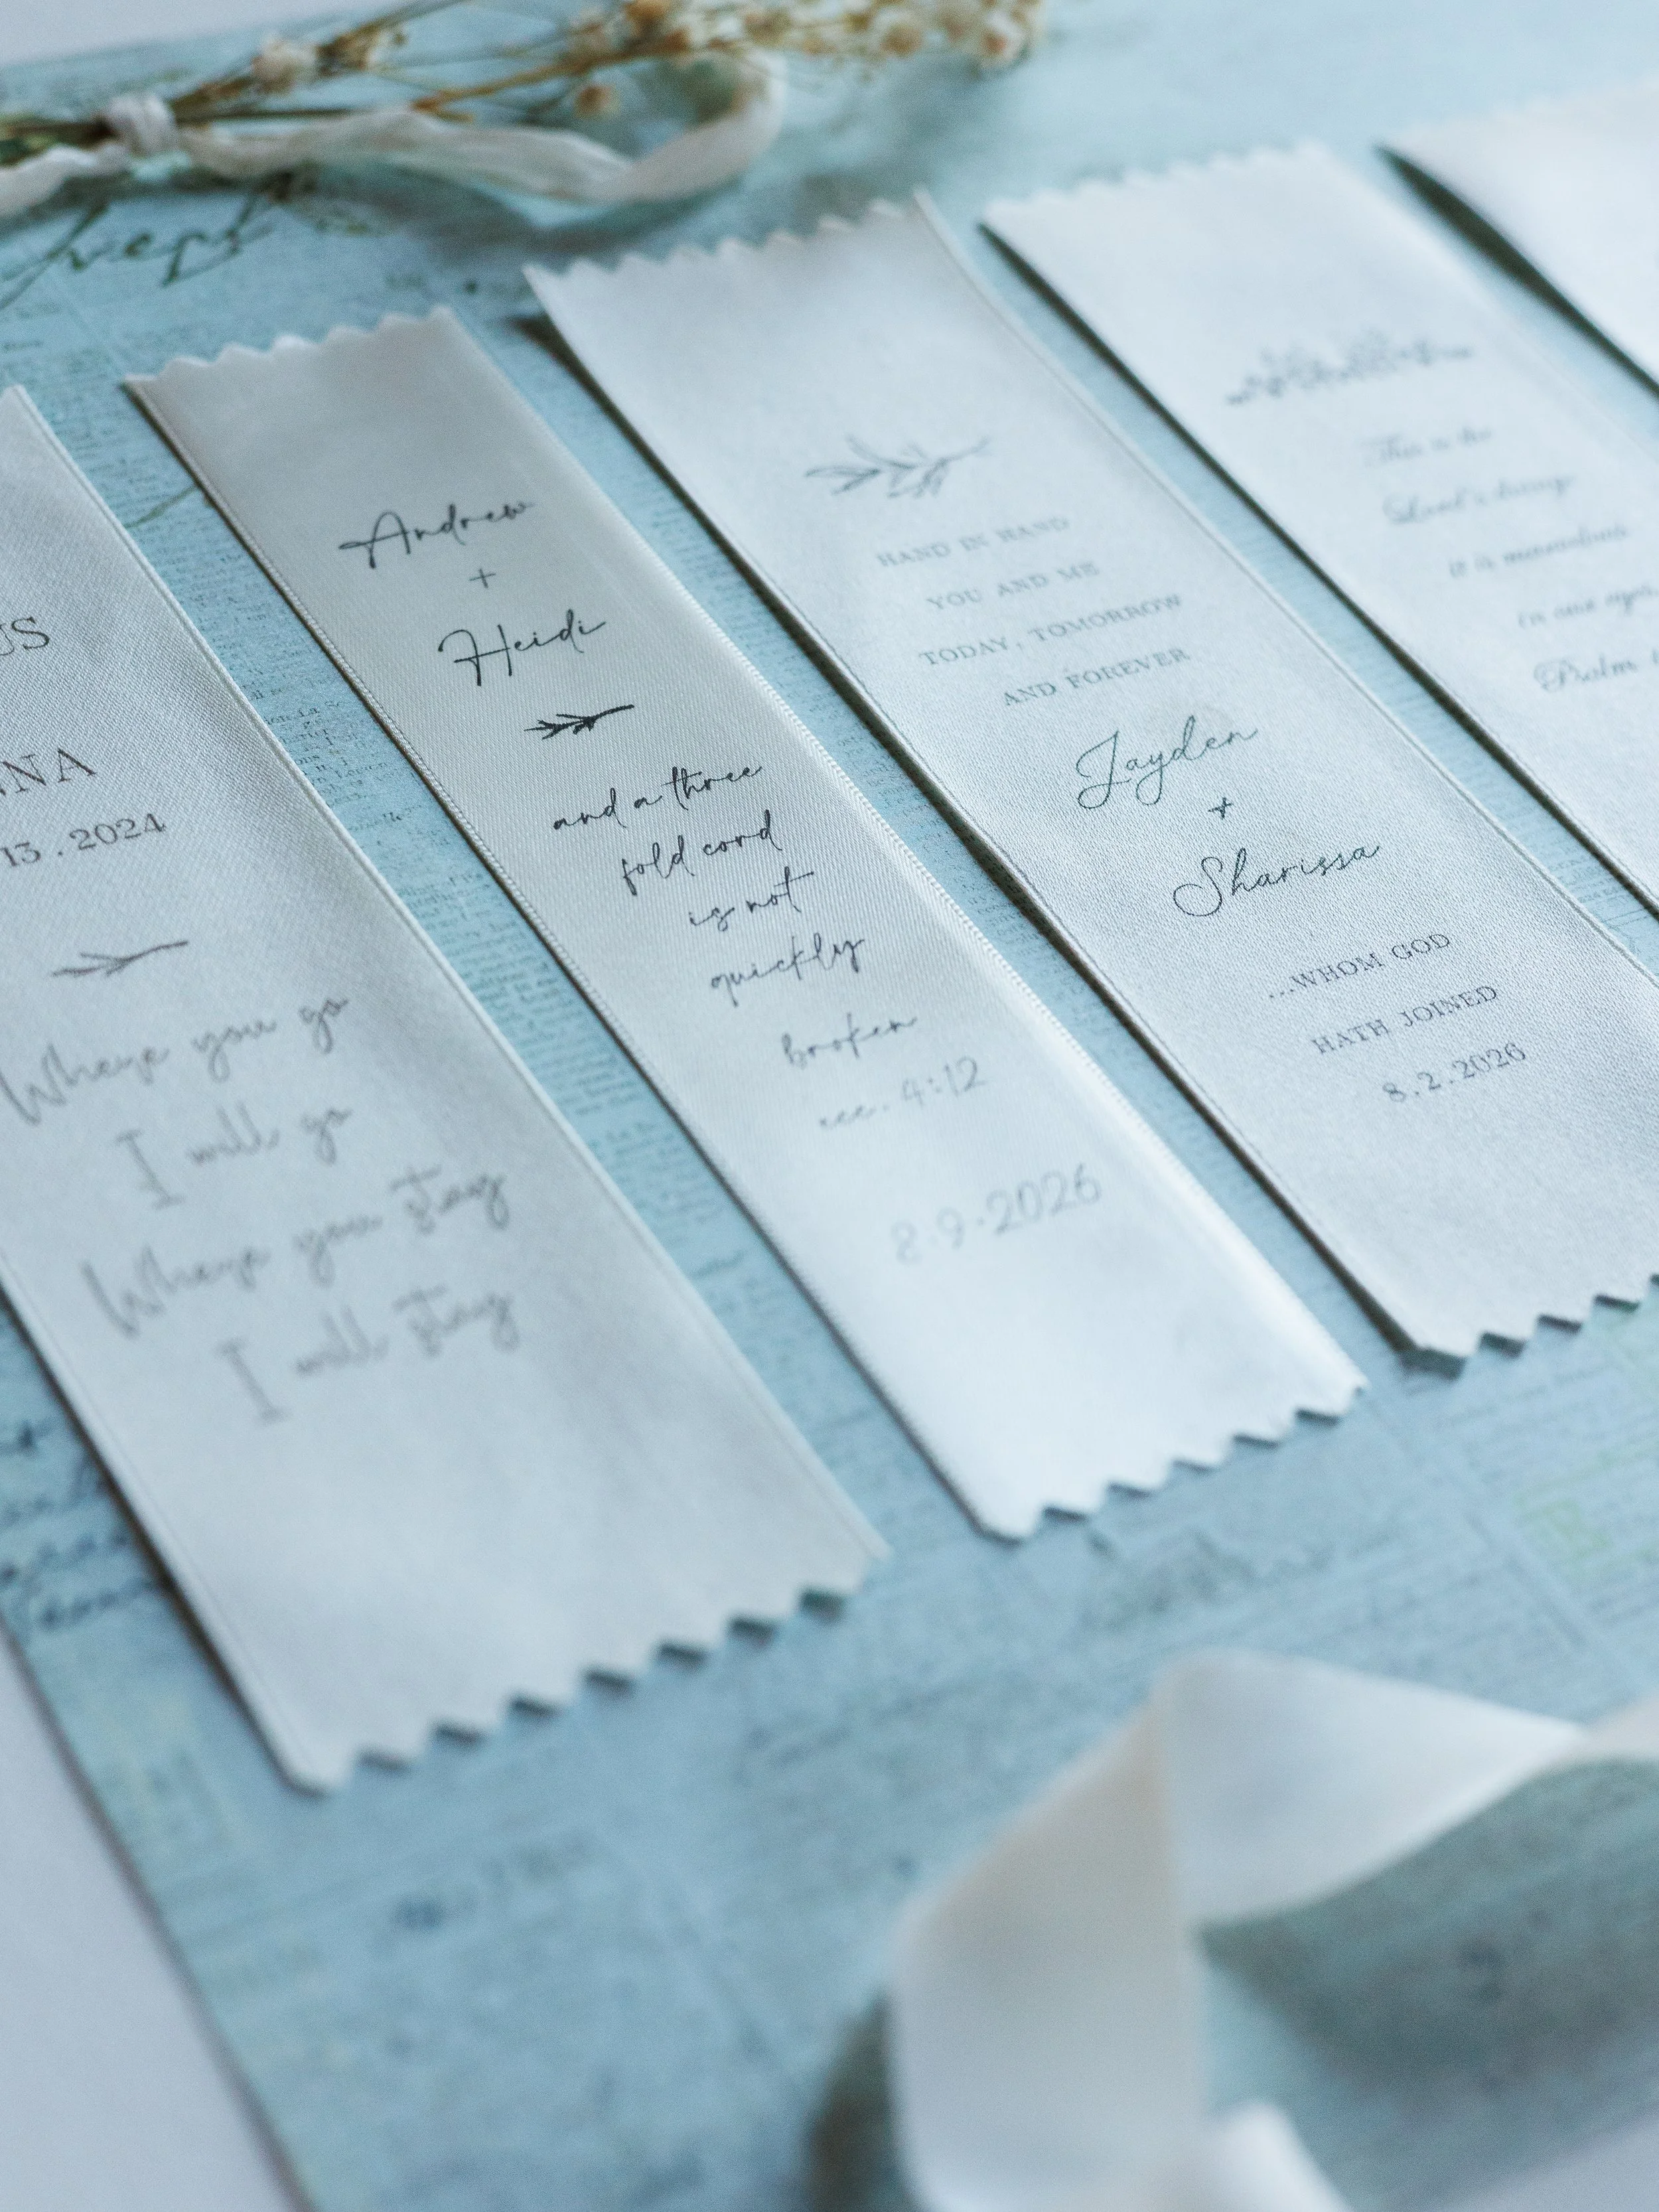 US
NNA
13.2024
Where you go
I will go
Where you stay
I will stay
Andrew
+
Heidi
and a three
fold cord
is not
quickly
broken
ecc. 4:12
8.9.2026
HAND IN HAND
YOU AND ME
TODAY, TOMORROW
AND FOREVER
Jayden
+
Sharissa
...WHOM GOD
HATH JOINED
8.2.2026
This is the
Lord's doing
it is marvelous
in our eyes,
Psalm